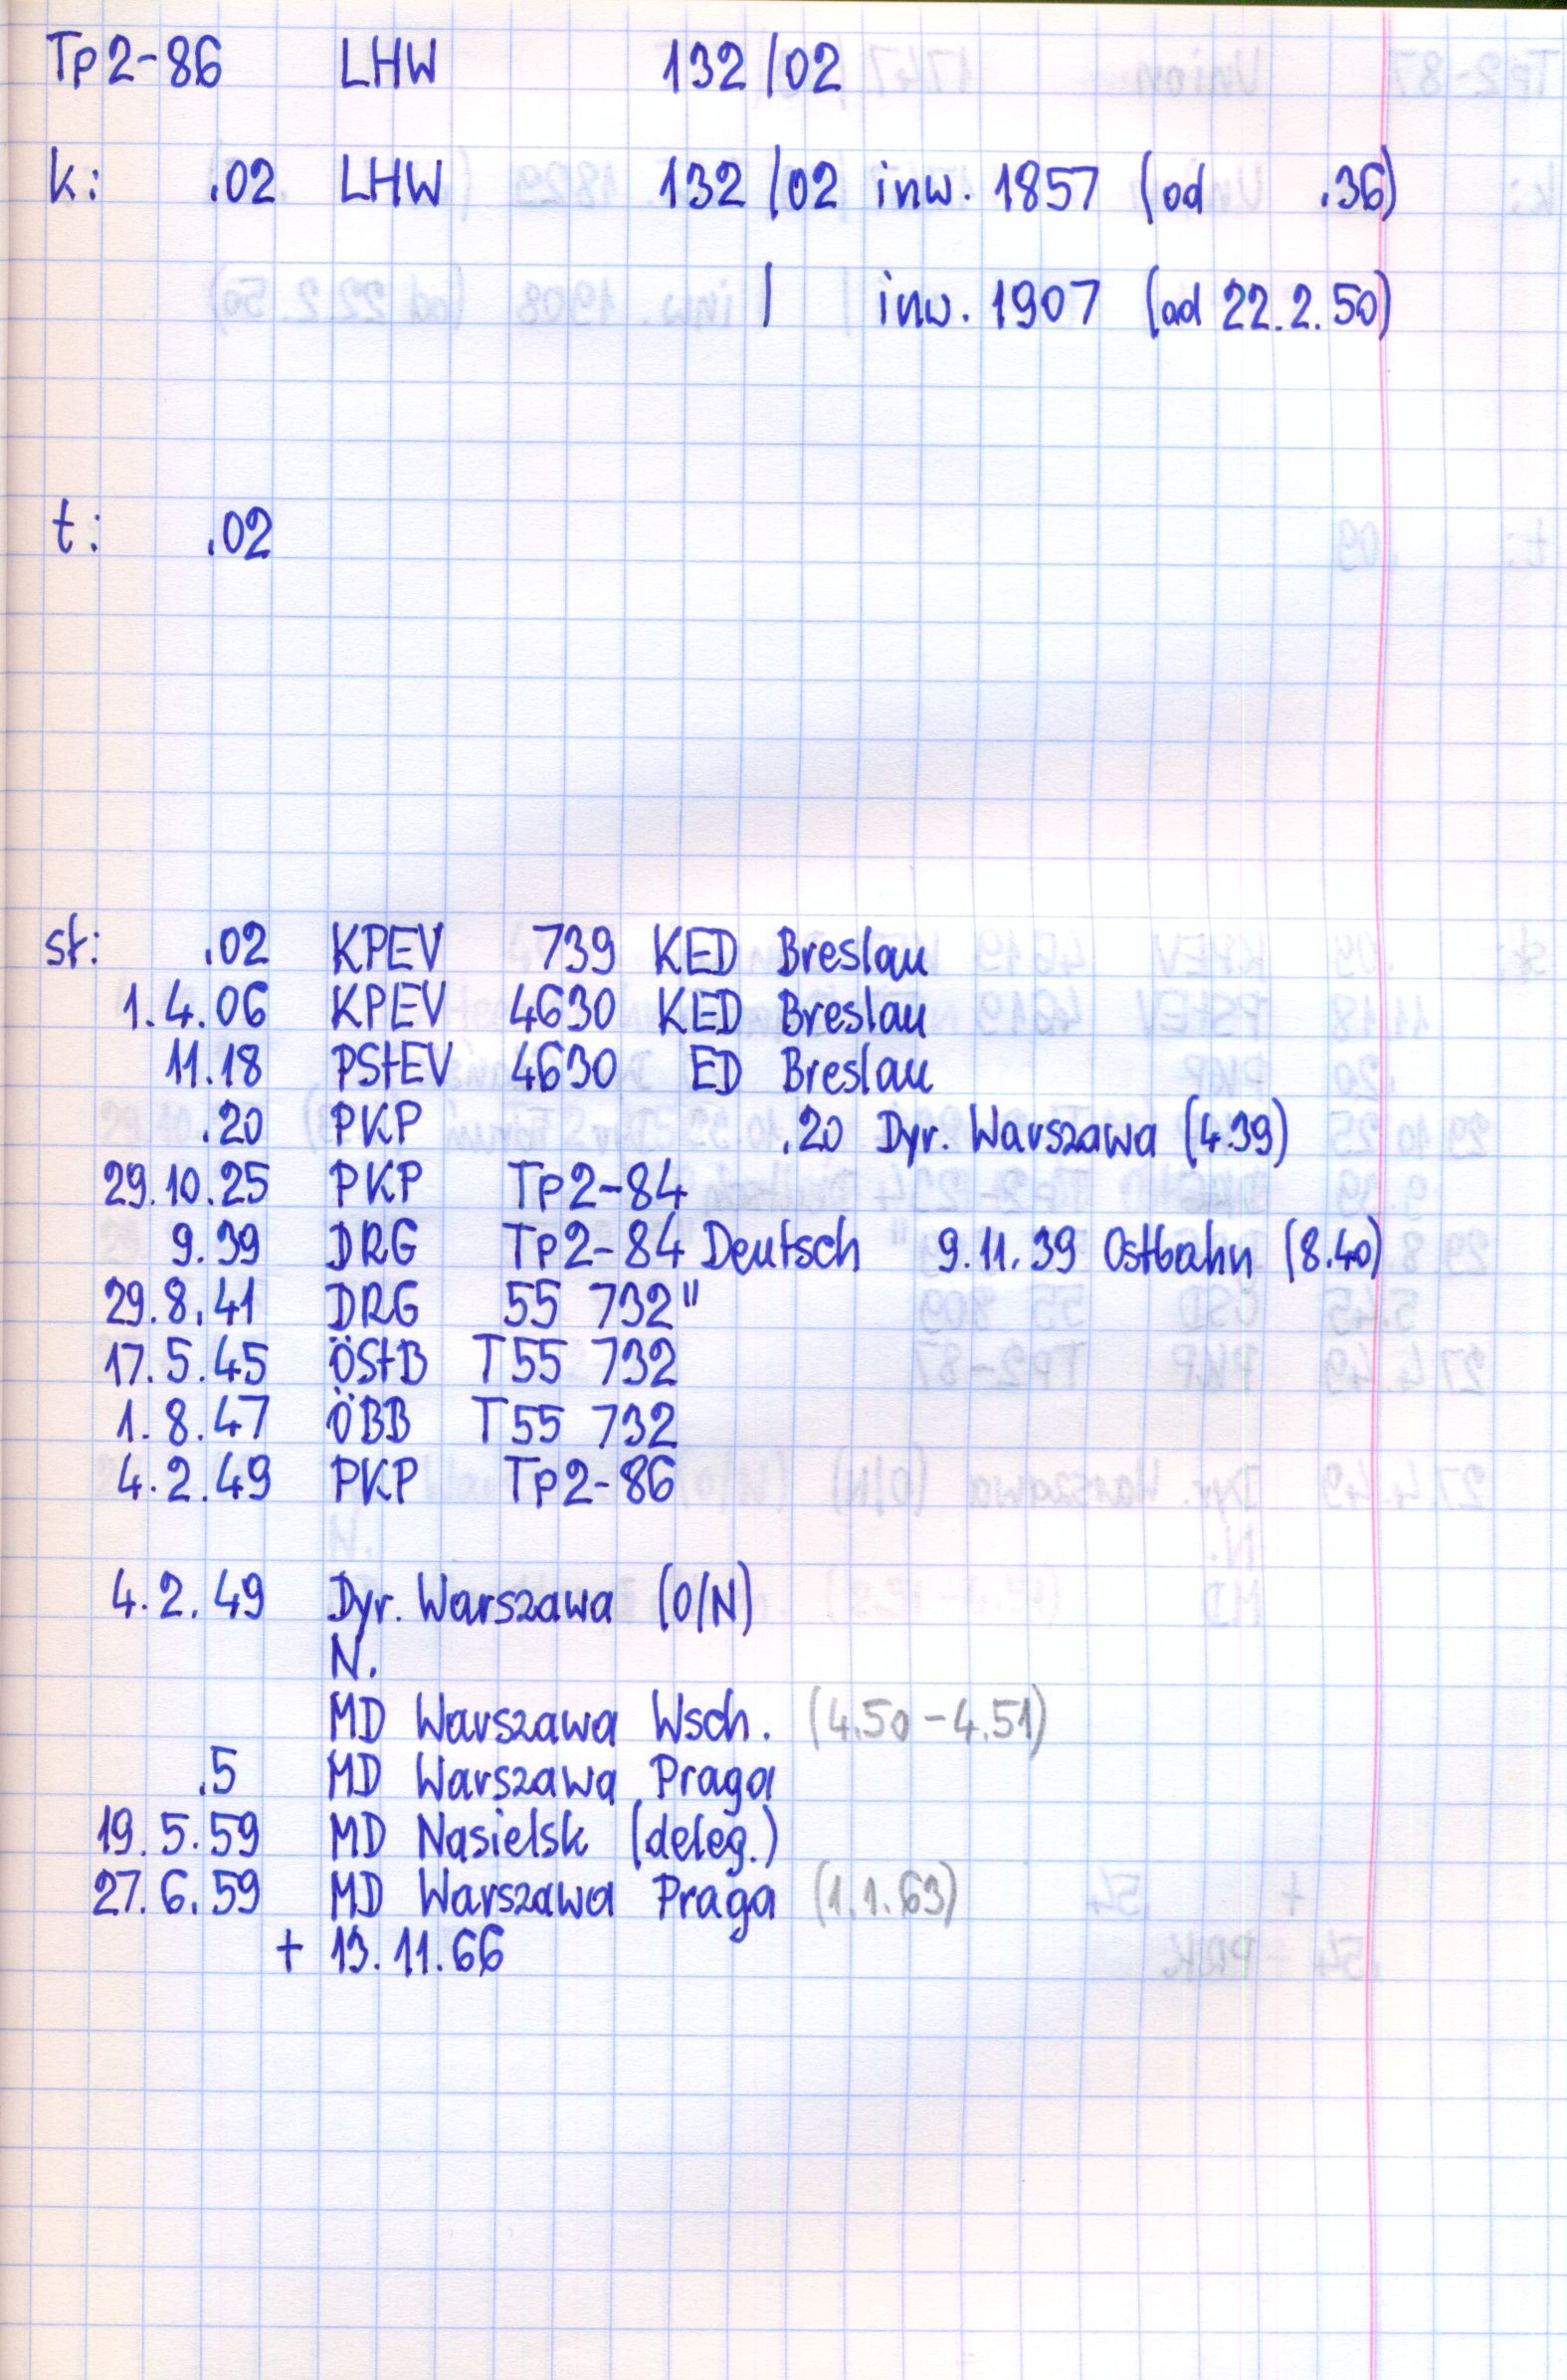 Tp2-86 LHW 132/02
k: .02 LHW 132/02 inw. 1857 (od .36)
/ inw. 1907 (od 22.2.50)
t: .02
st: .02 KPEV 739 KED Breslau
1.4.06 KPEV 4630 KED Breslau
11.18 PStEV 4630 ED Breslau
.20 PKP .20 Dyr. Warszawa (4.39)
29.10.25 PKP Tp2-84
9.39 DRG Tp2-84 Deutsch 9.11.39 Ostbahn (8.40)
29.8.41 DRG 55 732"
17.5.45 ÖStB T55 732
1.8.47 ÖBB T55 732
4.2.49 PKP Tp2-86
4.2.49 Dyr. Warszawa (O/N)
N.
MD Warszawa Wsch. (4.50-4.51)
.5 MD Warszawa Praga
19.5.59 MD Nasielsk (deleg.)
27.6.59 MD Warszawa Praga (1.1.63)
+ 13.11.66